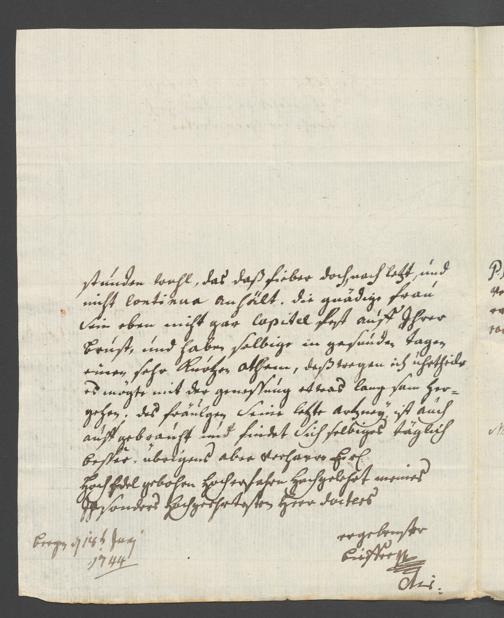 stunden wohl, das daß fieber doch nach letzt, und
nicht continua anhält. die gnädige frau
Sein eben nicht gar capitel fest auff Ihrer
brust, und haben selbige in gesunden tagen
einen sehr kurtzen athem, deßwegen ich
es mögte mit der genessung etwas lang sam her-
gehen. des fräulgen Seine letzte artzney ist auch
auff gebraucht und findet sich selbiges täglich
beßer. übrigens aber verharre Ew.
HochEdel gebohren Hocherfahrn Hochgelehrt meines
Insonders Hochgeehrtesten Herr doctors
ergebenster
Bergen d 14t Junj
1744
P.